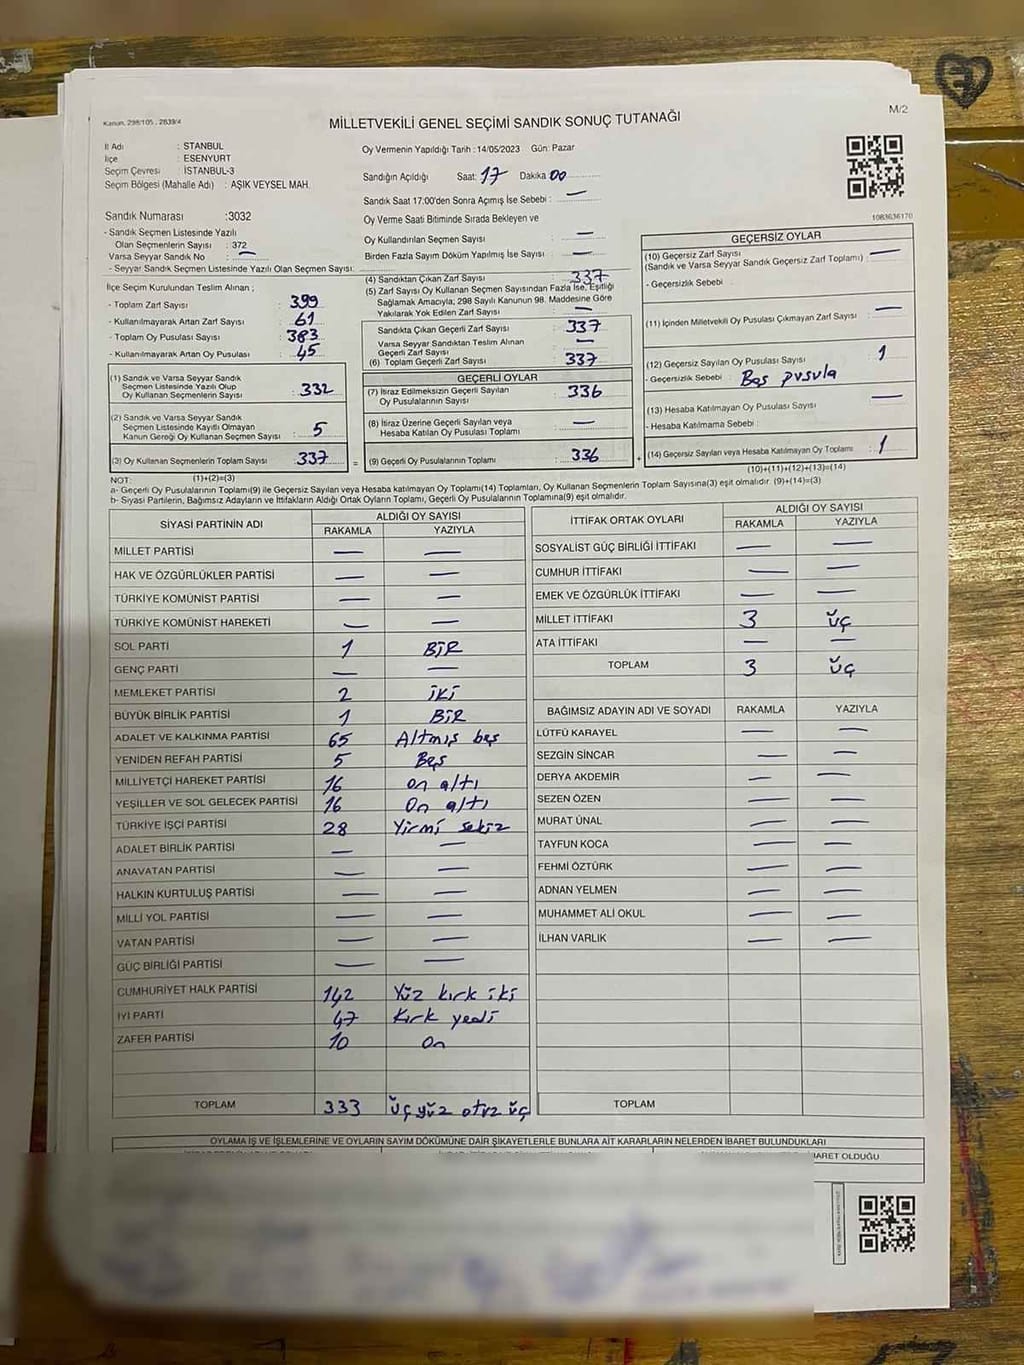 Kanun, 298/105 , 2839/4
MİLLETVEKİLİ GENEL SEÇİMİ SANDIK SONUÇ TUTANAĞI
M/2
İl Adı : STANBUL
İlçe : ESENYURT
Seçim Çevresi : İSTANBUL-3
Seçim Bölgesi (Mahalle Adı) : AŞIK VEYSEL MAH.
Sandık Numarası :3032
- Sandık Seçmen Listesinde Yazılı
Olan Seçmenlerin Sayısı : 372
Varsa Seyyar Sandık No : —
- Seyyar Sandık Seçmen Listesinde Yazılı Olan Seçmen Sayısı:
Oy Vermenin Yapıldığı Tarih : 14/05/2023 Gün: Pazar
Sandığın Açıldığı Saat: 17 Dakika 00
Sandık Saat 17:00'den Sonra Açımış İse Sebebi : —
Oy Verme Saati Bitiminde Sırada Bekleyen ve
Oy Kullandırılan Seçmen Sayısı : —
Birden Fazla Sayım Döküm Yapılmış İse Sayısı : —
1083636170
İlçe Seçim Kurulundan Teslim Alınan ;
- Toplam Zarf Sayısı : 399
- Kullanılmayarak Artan Zarf Sayısı : 61
- Toplam Oy Pusulası Sayısı : 383
- Kullanılmayarak Artan Oy Pusulası : 45
(1) Sandık ve Varsa Seyyar Sandık
Seçmen Listesinde Yazılı Olup
Oy Kullanan Seçmenlerin Sayısı : 332
(2) Sandık ve Varsa Seyyar Sandık
Seçmen Listesinde Kayıtlı Olmayan
Kanun Gereği Oy Kullanan Seçmen Sayısı : 5
(3) Oy Kullanan Seçmenlerin Toplam Sayısı : 337 =
(4) Sandıktan Çıkan Zarf Sayısı : 337
(5) Zarf Sayısı Oy Kullanan Seçmen Sayısından Fazla İse, Eşitliği
Sağlamak Amacıyla; 298 Sayılı Kanunun 98. Maddesine Göre
Yakılarak Yok Edilen Zarf Sayısı : —
Sandıkta Çıkan Geçerli Zarf Sayısı : 337
Varsa Seyyar Sandıktan Teslim Alınan
Geçerli Zarf Sayısı : —
(6) Toplam Geçerli Zarf Sayısı : 337
GEÇERLİ OYLAR
(7) İtiraz Edilmeksizin Geçerli Sayılan
Oy Pusulalarının Sayısı : 336
(8) İtiraz Üzerine Geçerli Sayılan veya
Hesaba Katılan Oy Pusulası Toplamı : —
(9) Geçerli Oy Pusulalarının Toplamı : 336 +
GEÇERSİZ OYLAR
(10) Geçersiz Zarf Sayısı : —
(Sandık ve Varsa Seyyar Sandık Geçersiz Zarf Toplamı)
- Geçersizlik Sebebi :
(11) İçinden Milletvekili Oy Pusulası Çıkmayan Zarf Sayısı : —
(12) Geçersiz Sayılan Oy Pusulası Sayısı : 1
- Geçersizlik Sebebi : Boş pusula
(13) Hesaba Katılmayan Oy Pusulası Sayısı : —
- Hesaba Katılmama Sebebi :
(14) Geçersiz Sayılan veya Hesaba Katılmayan Oy Toplamı : 1
NOT: (1)+(2)=(3) (10)+(11)+(12)+(13)=(14)
a- Geçerli Oy Pusulalarının Toplamı(9) ile Geçersiz Sayılan veya Hesaba katılmayan Oy Toplamı(14) Toplamları, Oy Kullanan Seçmenlerin Toplam Sayısına(3) eşit olmalıdır. (9)+(14)=(3)
b- Siyasi Partilerin, Bağımsız Adayların ve İttifakların Aldığı Ortak Oyların Toplamı, Geçerli Oy Pusulalarının Toplamına(9) eşit olmalıdır.
SİYASİ PARTİNİN ADI ALDIĞI OY SAYISI
RAKAMLA YAZIYLA
MİLLET PARTİSİ — —
HAK VE ÖZGÜRLÜKLER PARTİSİ — —
TÜRKİYE KOMÜNİST PARTİSİ — —
TÜRKİYE KOMÜNİST HAREKETİ — —
SOL PARTİ 1 BİR
GENÇ PARTİ — —
MEMLEKET PARTİSİ 2 iki
BÜYÜK BİRLİK PARTİSİ 1 BİR
ADALET VE KALKINMA PARTİSİ 65 Altmış beş
YENİDEN REFAH PARTİSİ 5 Beş
MİLLİYETÇİ HAREKET PARTİSİ 16 on altı
YEŞİLLER VE SOL GELECEK PARTİSİ 16 On altı
TÜRKİYE İŞÇİ PARTİSİ 28 Yirmi sekiz
ADALET BİRLİK PARTİSİ — —
ANAVATAN PARTİSİ — —
HALKIN KURTULUŞ PARTİSİ — —
MİLLİ YOL PARTİSİ — —
VATAN PARTİSİ — —
GÜÇ BİRLİĞİ PARTİSİ — —
CUMHURİYET HALK PARTİSİ 142 Yüz kırk iki
İYİ PARTİ 47 Kırk yedi
ZAFER PARTİSİ 10 On
TOPLAM 333 üç yüz otuz üç
İTTİFAK ORTAK OYLARI ALDIĞI OY SAYISI
RAKAMLA YAZIYLA
SOSYALİST GÜÇ BİRLİĞİ İTTİFAKI — —
CUMHUR İTTİFAKI — —
EMEK VE ÖZGÜRLÜK İTTİFAKI — —
MİLLET İTTİFAKI 3 üç
ATA İTTİFAKI — —
TOPLAM 3 üç
BAĞIMSIZ ADAYIN ADI VE SOYADI RAKAMLA YAZIYLA
LÜTFÜ KARAYEL — —
SEZGİN SİNCAR — —
DERYA AKDEMİR — —
SEZEN ÖZEN — —
MURAT ÜNAL — —
TAYFUN KOCA — —
FEHMİ ÖZTÜRK — —
ADNAN YELMEN — —
MUHAMMET ALİ OKUL — —
İLHAN VARLIK — —
TOPLAM
OYLAMA İŞ VE İŞLEMLERİNE VE OYLARIN SAYIM DÖKÜMÜNE DAİR ŞİKAYETLERLE BUNLARA AİT KARARLARIN NELERDEN İBARET BULUNDUKLARI
İBARET OLDUĞU